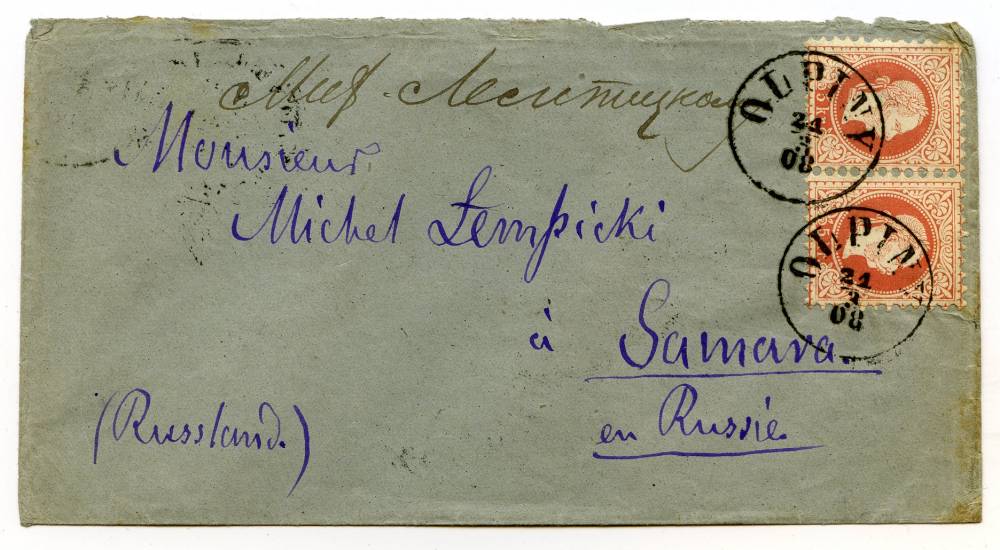 OLPINY
24
08
Monsieur
Michel Łempicki
OLPINY
24
08
à Samara.
(Russland.)
en Russie.